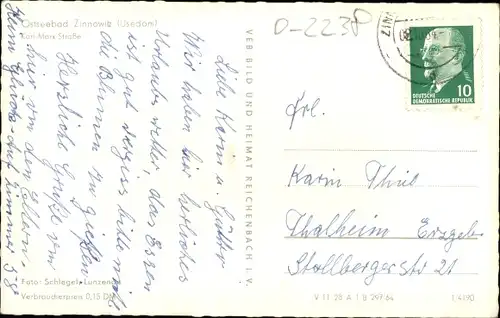 Ostseebad Zinnowitz (Usedom)
Karl-Marx-Straße
D-2238
Liebe Karin u. Günter
Wir haben hier herrliches
Urlaubswetter, das Essen
ist gut. Vergiss bitte nicht
die Blumen zu gießen
Herzliche Grüße von
hier von den Eltern.
Zimmer 58
Foto: Schlegel, Lunzenau
Verbraucherpreis 0,15 DM
VEB BILD UND HEIMAT REICHENBACH i. V.
ZINN
10
DEUTSCHE
DEMOKRATISCHE REPUBLIK
Frl.
Karin Thus
Thalheim Erzgeb
Stollbergerstr 21
V 11 28 A 1 B 297/64
1/4190